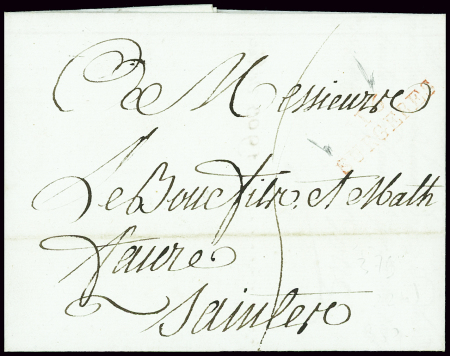 Messieurs
Le Bouc fils. et Math
faure
Saintes